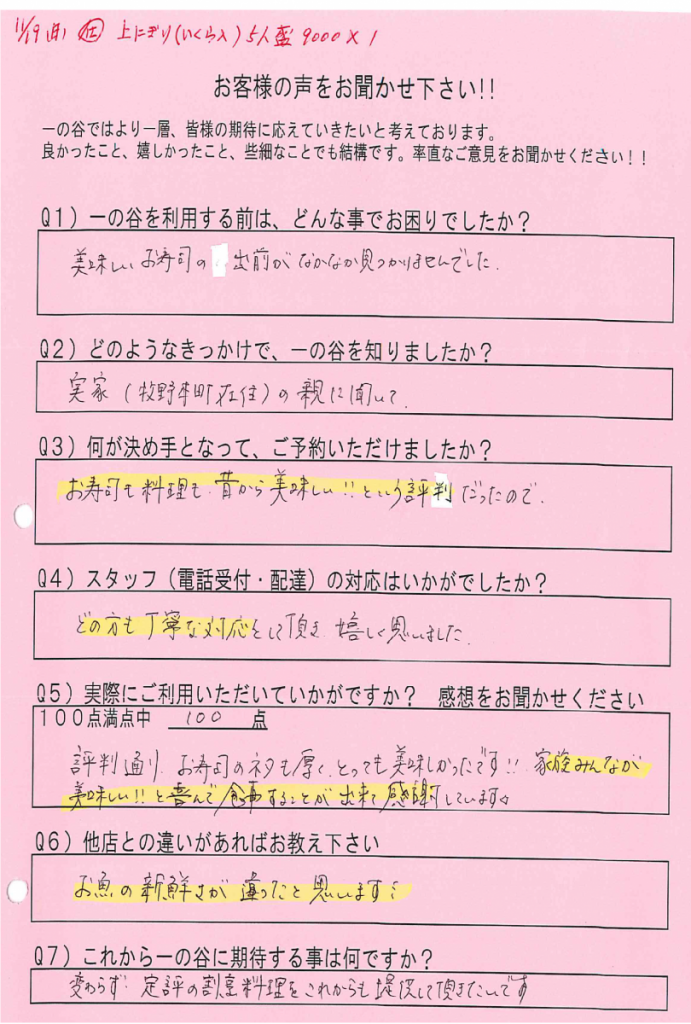 11/19(日) 上にぎり(いくら入)5人盛 9000×1
お客様の声をお聞かせ下さい!!
一の谷ではより一層、皆様の期待に応えていきたいと考えております。
良かったこと、嬉しかったこと、些細なことでも結構です。率直なご意見をお聞かせください!!
Q1)一の谷を利用する前は、どんな事でお困りでしたか?
美味しいお寿司の 出前がなかなか見つかりませんでした.
Q2)どのようなきっかけで、一の谷を知りましたか?
実家(牧野本町在住)の親に聞いて.
Q3)何が決め手となって、ご予約いただけましたか?
お寿司も料理も、昔から美味しい!!という評判だったので.
Q4)スタッフ(電話受付・配達)の対応はいかがでしたか?
どの方も丁寧な対応をして頂き 嬉しく思いました.
Q5)実際にご利用いただいていかがですか? 感想をお聞かせください
100点満点中 100 点
評判通り、お寿司のネタも厚く、とっても美味しかったです!! 家族みんなが
美味しい!!と喜んで食事することが出来て感謝しています☆
Q6)他店との違いがあればお教え下さい
お魚の新鮮さが違ったと思います!
Q7)これから一の谷に期待する事は何ですか?
変わらず 定評の割烹料理をこれからも提供して頂きたいです